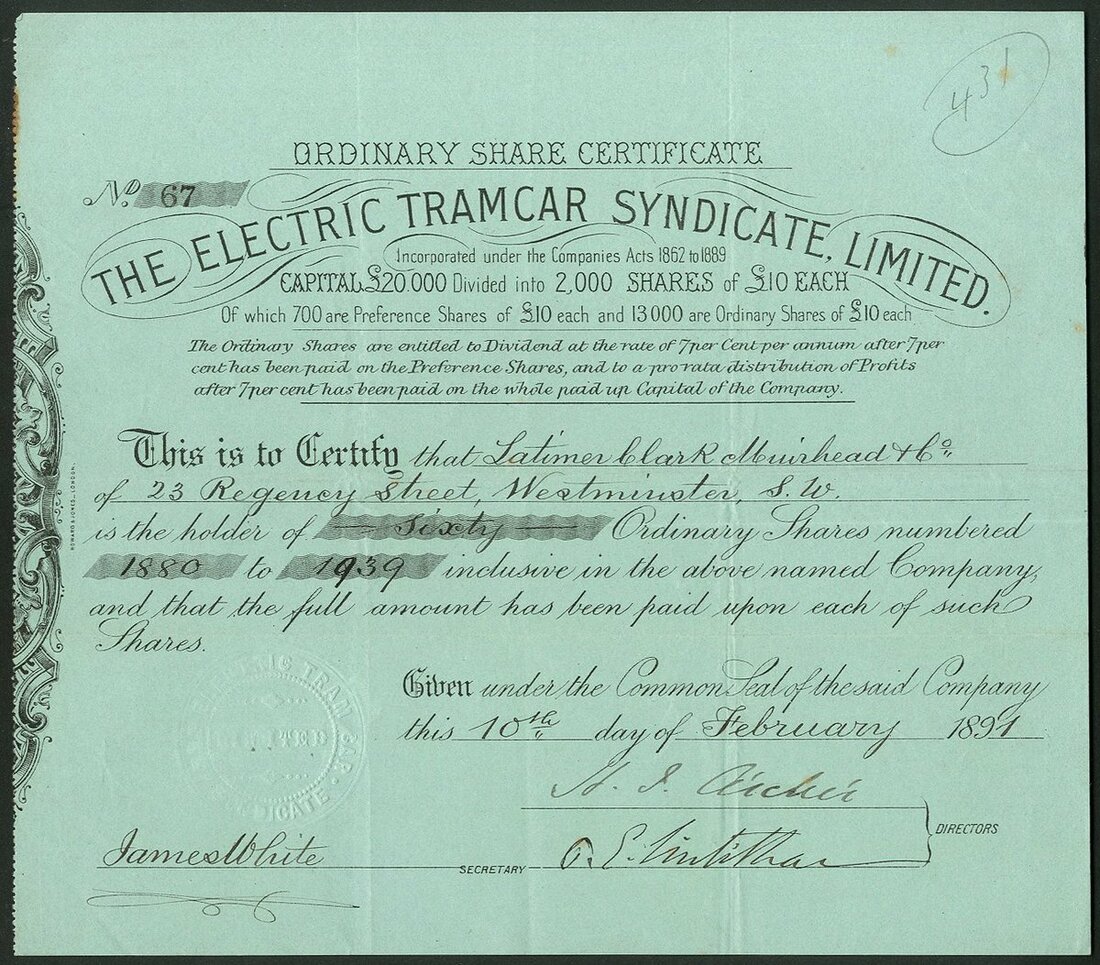 431
ORDINARY SHARE CERTIFICATE
No. 67
THE ELECTRIC TRAMCAR SYNDICATE, LIMITED.
Incorporated under the Companies Acts 1862 to 1889
CAPITAL £20.000 Divided into 2,000 SHARES of £10 EACH
Of which 700 are Preference Shares of £10 each and 13000 are Ordinary Shares of £10 each
The Ordinary Shares are entitled to Dividend at the rate of 7 per Cent per annum after 7 per
cent has been paid on the Preference Shares, and to a pro rata distribution of Profits
after 7 per cent has been paid on the whole paid up Capital of the Company.
This is to Certify that Latimer Clark Muirhead & Co.
of 23 Regency Street, Westminster, S.W.
is the holder of Sixty Ordinary Shares numbered
1880 to 1939 inclusive in the above named Company,
and that the full amount has been paid upon each of such
Shares.
Given under the Common Seal of the said Company
this 10th day of February 1891
TRAM CAR
LIMITED
DIRECTORS
James White
SECRETARY
HOWARD & JONES, LONDON.